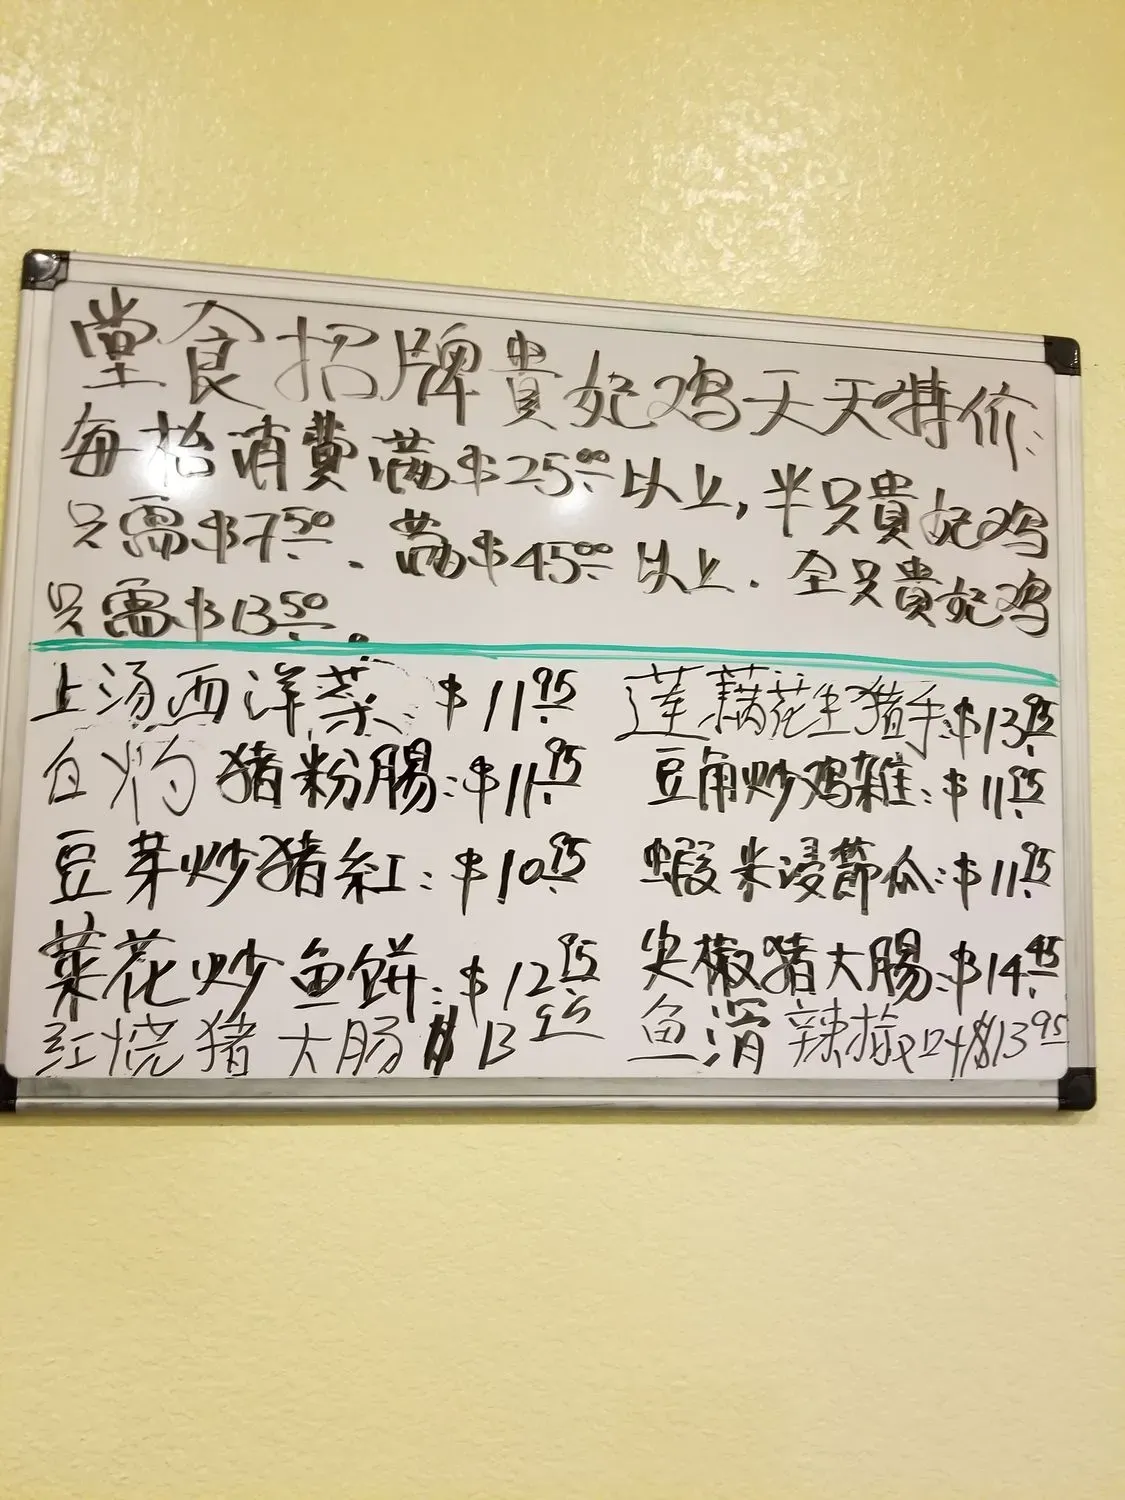 堂食招牌貴妃鸡天天特价:
每抬消費满$25.00以上,半只貴妃鸡
只需$7.50. 满$45.00以上. 全只貴妃鸡
只需$13.50.
上汤西洋菜:$11.95 莲藕花生猪手:$13.95
白灼猪粉腸:$11.95 豆角炒鸡雜:$11.95
豆芽炒猪紅:$10.95 蝦米浸節瓜:$11.95
菜花炒鱼餅:$12.95 尖椒猪大腸:$14.45
红烧猪大肠$13.95 鱼滑辣椒 $13.95